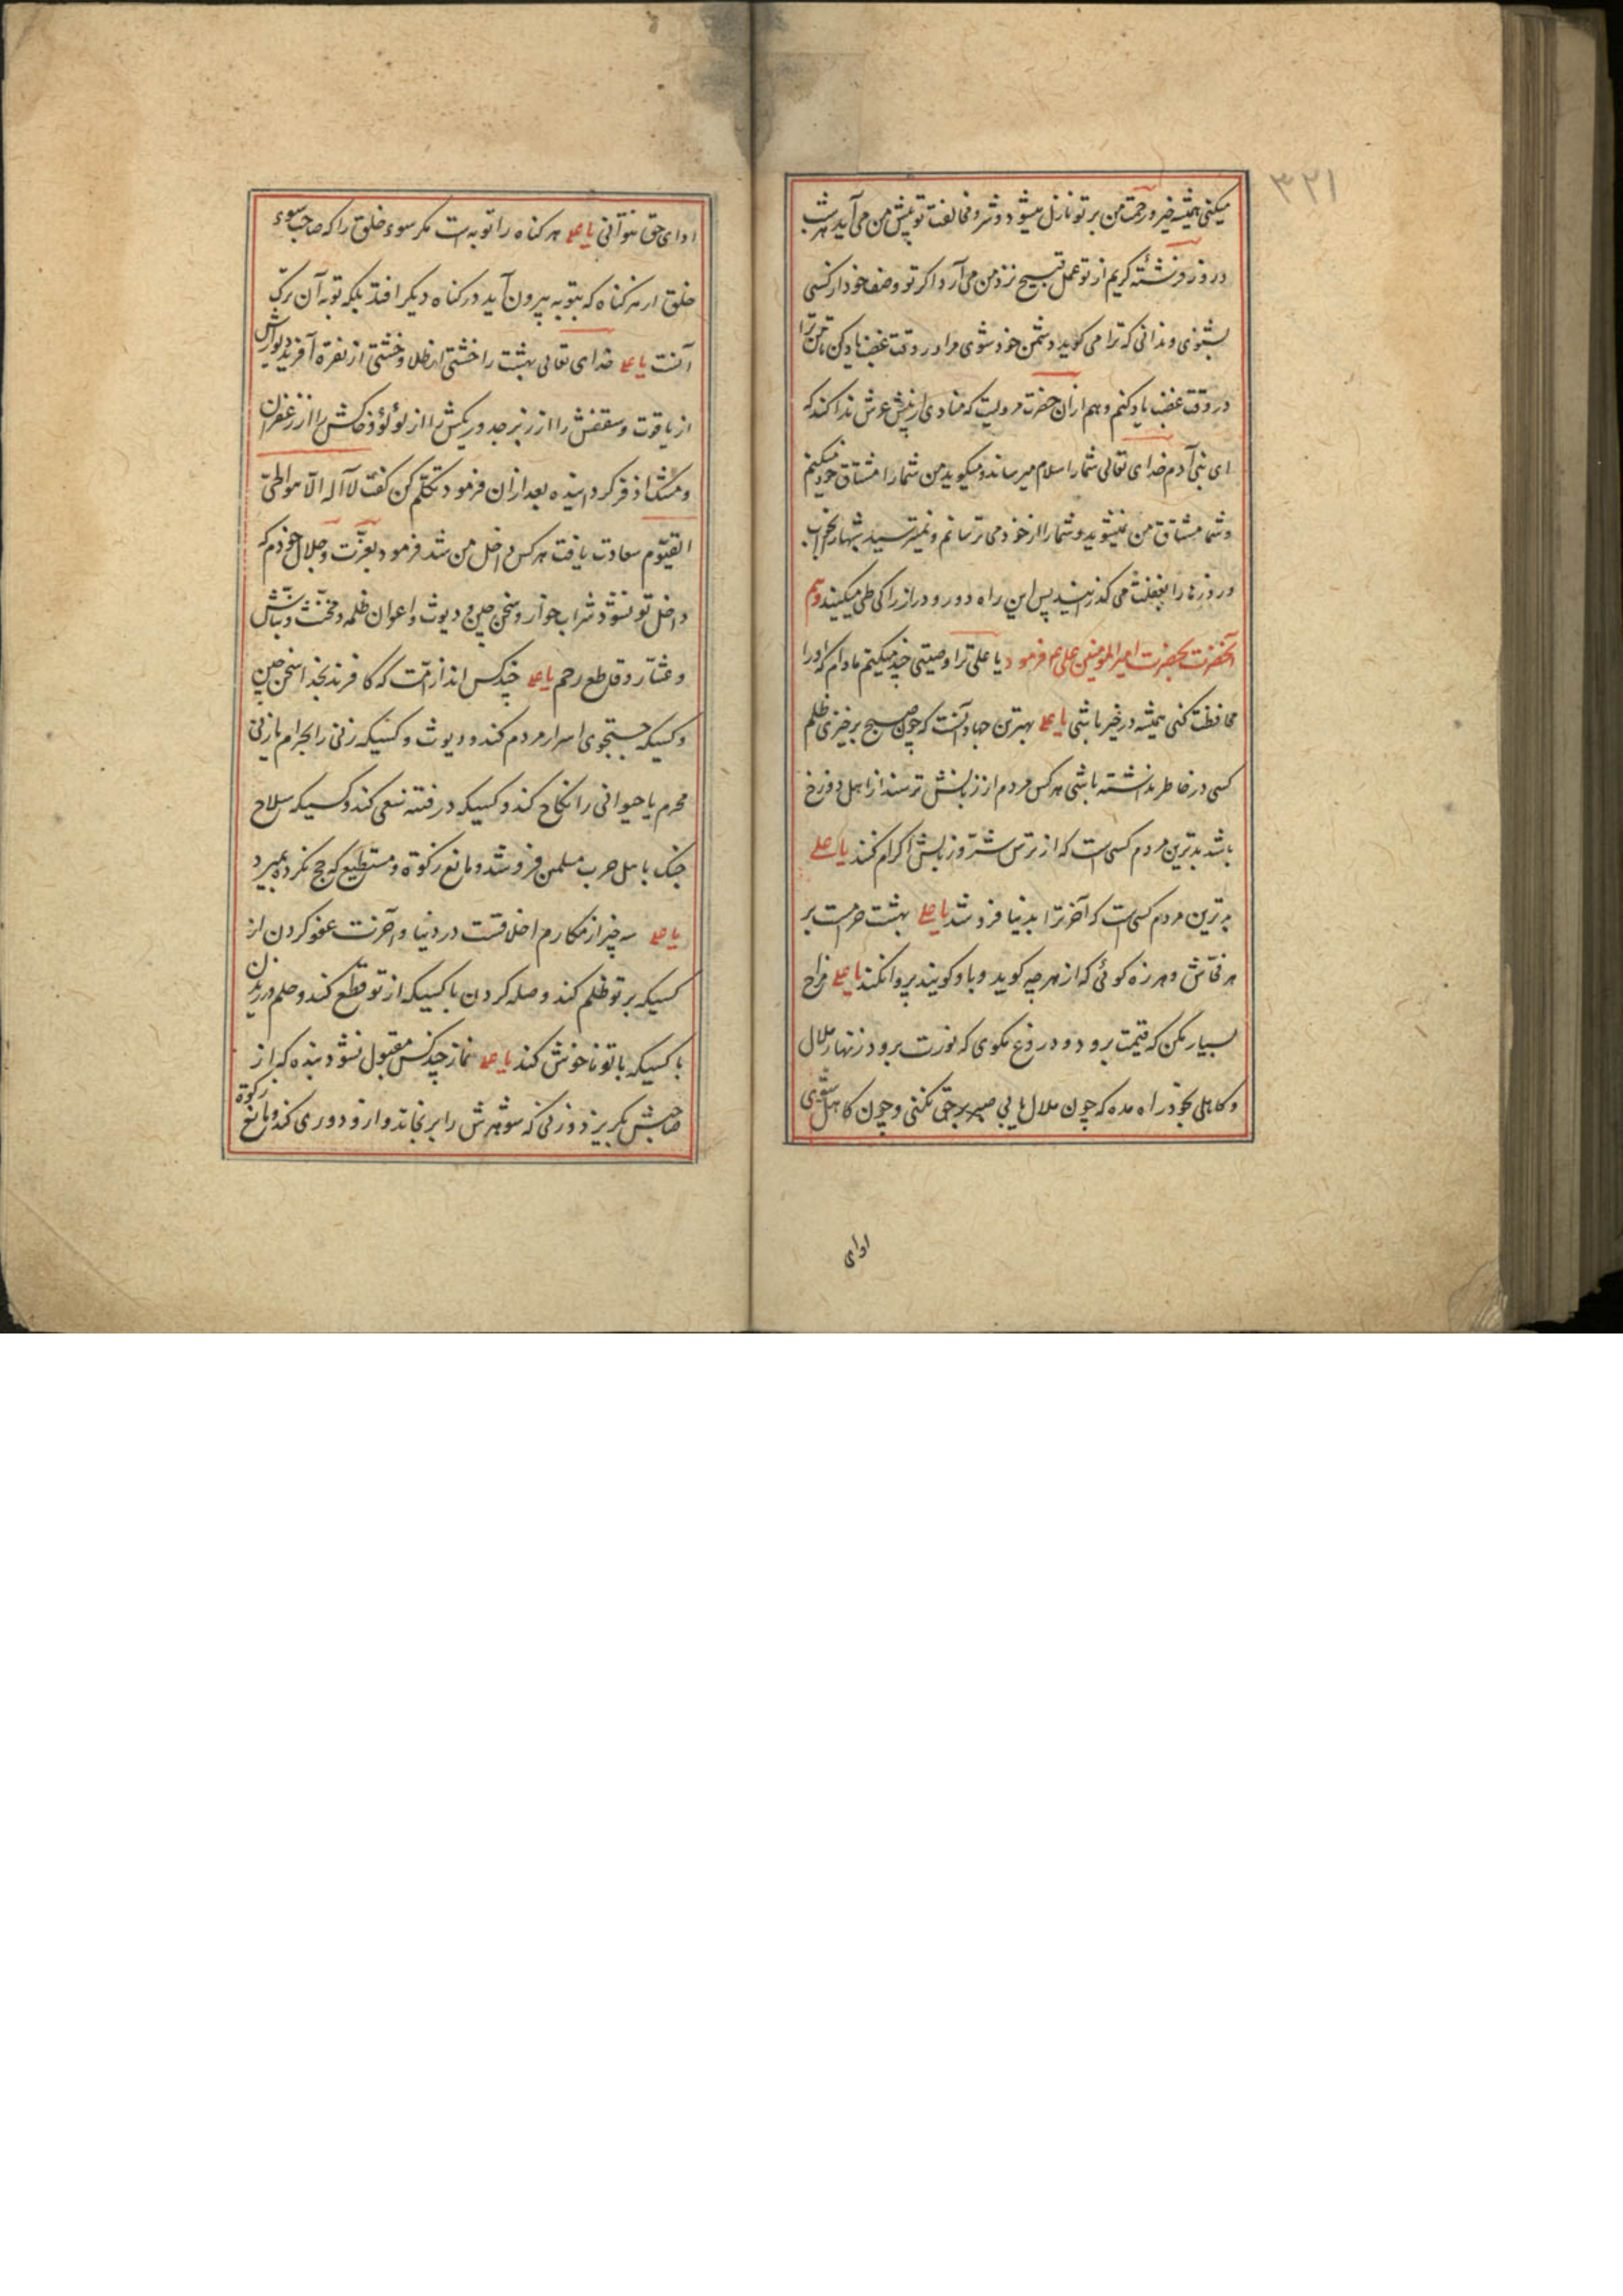 ۳۲۱
میکنی همیشه خیر و رحمت من بر تو نازل میشود و شر و مخالفت تو پیش من می آید هر شب
و روز فرشته کریم از تو عمل قبیح نزد من می آرد اگر تو وصف خود از کسی
بشنوی و ندانی که ترا می گوید دشمن خود شوی مرا در وقت غضب یاد کن تا من ترا
در وقت غضب یاد کنم و هم ازان حضرت مرویست که منادی از پیش عرش ندا کند که
ای بنی آدم خدای تعالی شما را سلام میرساند و میگوید من شما را مشتاق خود میکنم
و شما مشتاق من نمیشوید و شما را از خود می ترسانم و نمیترسید شبها را بخواب
و روزها را بغفلت می گذرانید پس این راه دور و دراز را کی طی میکنید و هم
آنحضرت بحضرت امیر المومنین علی ع فرمود یا علی ترا وصیتی چند میکنم مادام که او را
محافظت کنی همیشه در خیر باشی یا علی بهترین جهاد آنست که چون صبح برخیزی ظلم
کسی در خاطر نداشته باشی هر کس مردم از زبانش ترسند از اهل دوزخ
باشد بدترین مردم کسی است که از ترس شر و زبانش اکرام کنند یا علی
بدترین مردم کسی است که آخرت را بدنیا فروشد یا علی بهشت حرامست بر
هر فحاش و هرزه گوئی که از هر چه گوید و باو گویند پروا نکند یا علی مزاح
بسیار مکن که قیمتت برود و دروغ مگوی که نورت برود زنهار ملال
و کاهلی بخود راه مده که چون ملال یابی صبر بر حق نکنی و چون کاهل شوی
ادای
ادای حق نتوانی یا علی هر گناه را توبه است مگر سوء خلق را که صاحب سوء
خلق از هر گناه که بتوبه بیرون آید در گناه دیگر افتد بلکه توبه آن ترک
آنست یا علی خدای تعالی بهشت را خشتی از طلا و خشتی از نقره آفرید دیوارش
از یاقوت و سقفش را از زبرجد و ریگش را از لؤلؤ و خاکش را از زعفران
و مشک اذفر گردانیده بعد ازان فرمود تکلم کن گفت لا اله الا هو الحی
القیوم سعادت یافت هر کس داخل من شد فرمود بعزت و جلال خودم که
داخل تو نشود شراب خوار و سخن چین و دیوث و اعوان ظلمه و مخنث و نباش
و عشار و قاطع رحم یا علی چند کس اند از امت که کافرند بخدا سخن چین
و کسیکه جستجوی اسرار مردم کند و دیوث و کسیکه زنی را بحرام یا زنی
محرم یا حیوانی را نکاح کند و کسیکه در فتنه سعی کند و کسیکه سلاح
جنک باهل حرب مسلمین فروشد و مانع زکوة و مستطیع که حج نکرده بمیرد
یا علی سه چیز از مکارم اخلاقست در دنیا و آخرت عفو کردن از
کسیکه بر تو ظلم کند و صله کردن با کسیکه از تو قطع کند و حلم ورزیدن
با کسیکه با تو ناخوش کند یا علی نماز چند کس مقبول نشود بنده که از
صاحبش بگریزد و زنی که شوهرش را برنجاند و ازو دوری کند و مانع زکوة